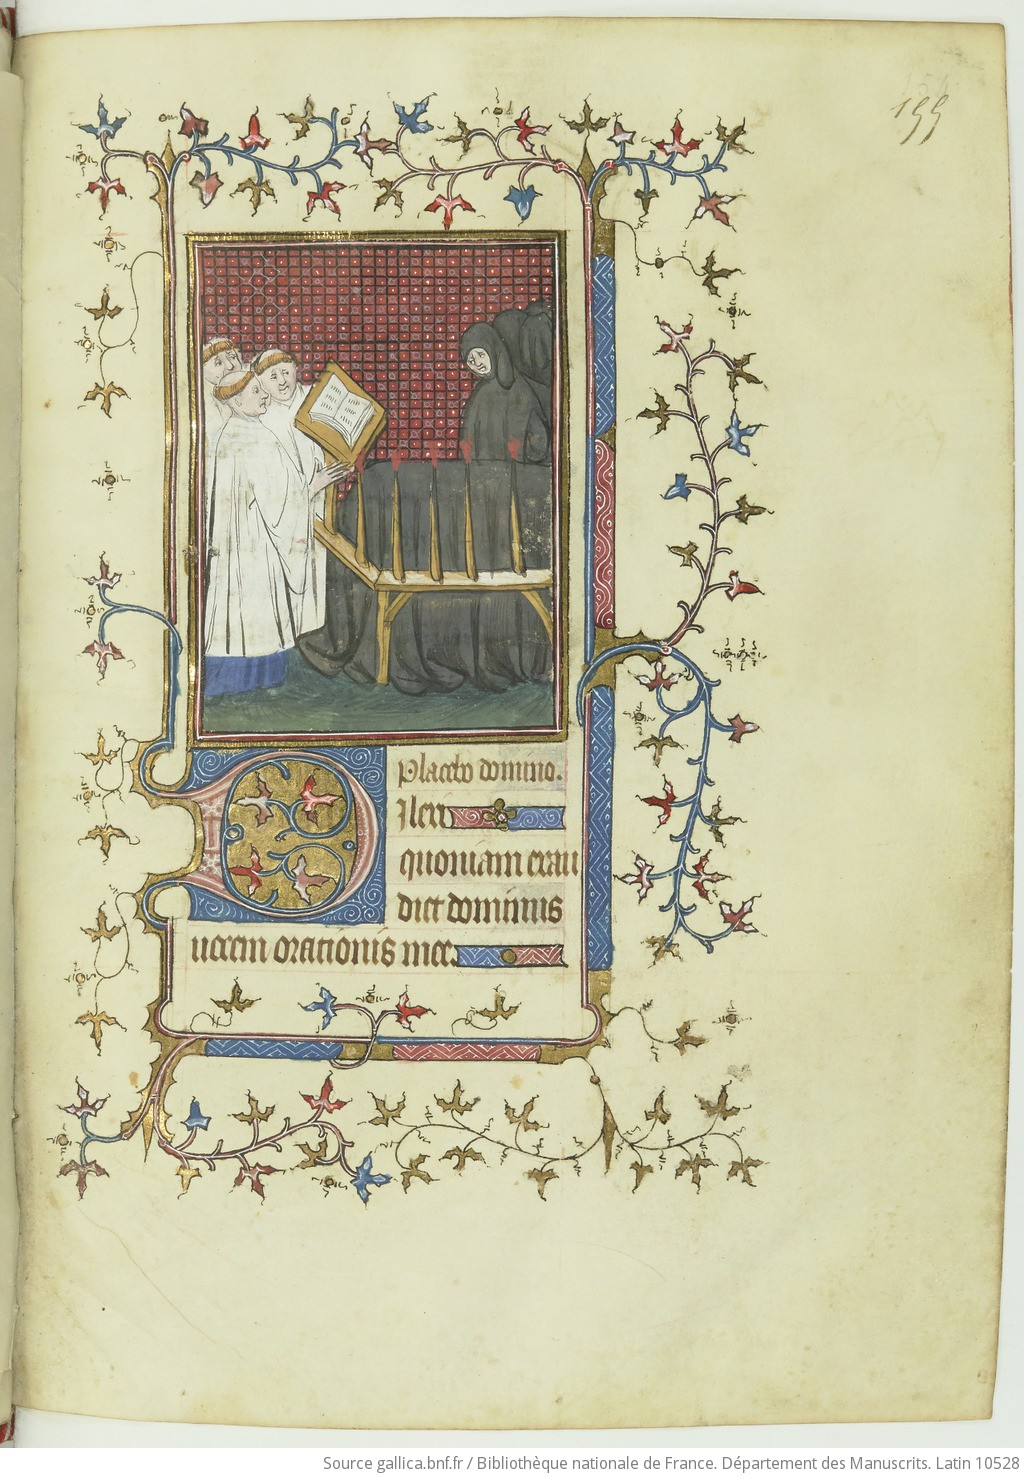 199
Placebo domino.
Dilexi
quoniam exau
diet dominus
uocem orationis mee.
Source gallica.bnf.fr / Bibliothèque nationale de France. Département des Manuscrits. Latin 10528